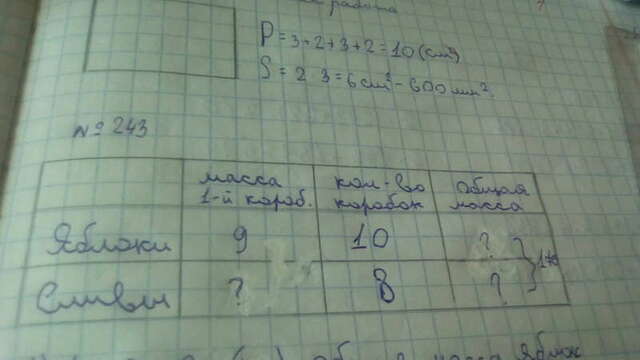 работа
P = 3+2+3+2 = 10 (см)
S = 2 3 = 6 см² - 600 мм²
№ 243
масса 1-й короб.
кол-во коробок
общая масса
Яблоки 9 10 ?
Сливы ? 8 ?
общ масса яблок